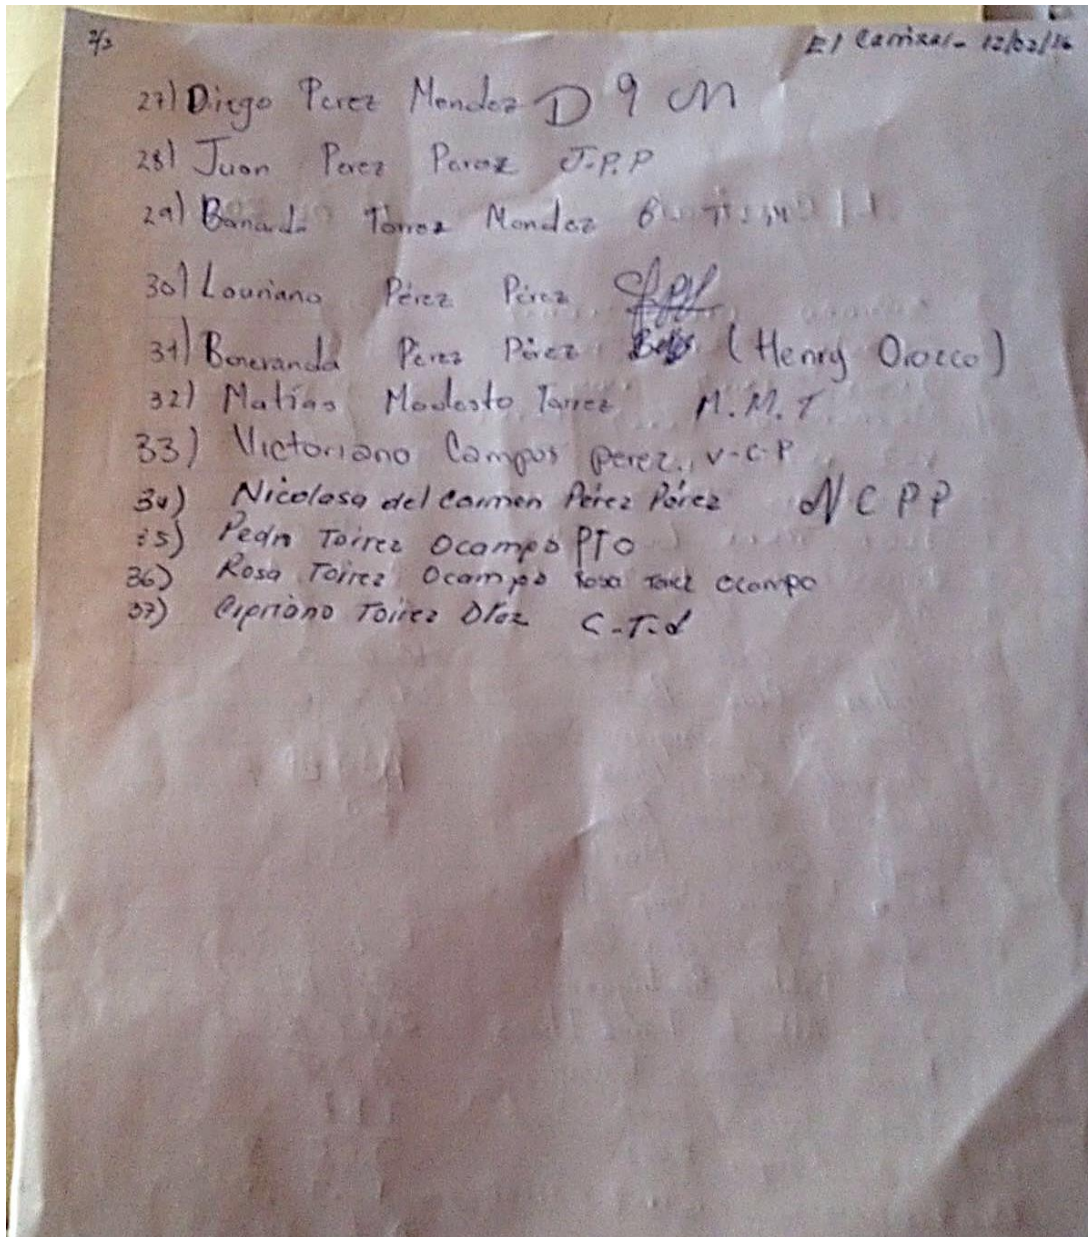 2/2 El Carrizal - 12/02/16
27) Diego Perez Mendez D 9 M
28) Juan Perez Perez J.P.P
29) Torrez Mendez
30) Louriano Pérez Pérez
31) Beneranda Perez Pérez (Henry Orozco)
32) Matías Modesto Torrez M.M.T
33) Victoriano Campos perez. V-C-P
34) Nicolasa del Carmen Pérez Pérez N C P P
35) Pedro Toirrez Ocampo PTO
36) Rosa Toirez Ocampo Rosa Ocampo
37) Cipriano Toirez Díaz C-T-d